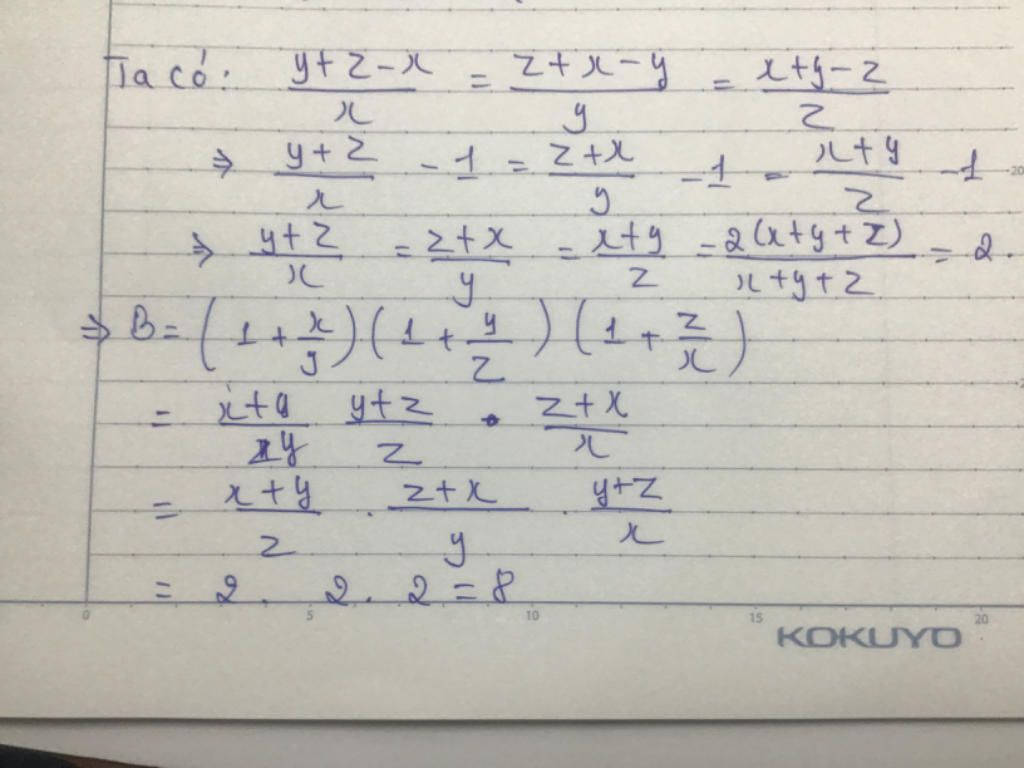 Ta có: (y+z-x)/x = (z+x-y)/y = (x+y-z)/z
⇒ (y+z)/x - 1 = (z+x)/y - 1 = (x+y)/z - 1
⇒ (y+z)/x = (z+x)/y = (x+y)/z = 2(x+y+z)/(x+y+z) = 2.
⇒ B = (1 + x/y)(1 + y/z)(1 + z/x)
= (x+y)/y (y+z)/z . (z+x)/x
= (x+y)/z . (z+x)/y . (y+z)/x
= 2. 2. 2 = 8
0 5 10 15 20
KOKUYO